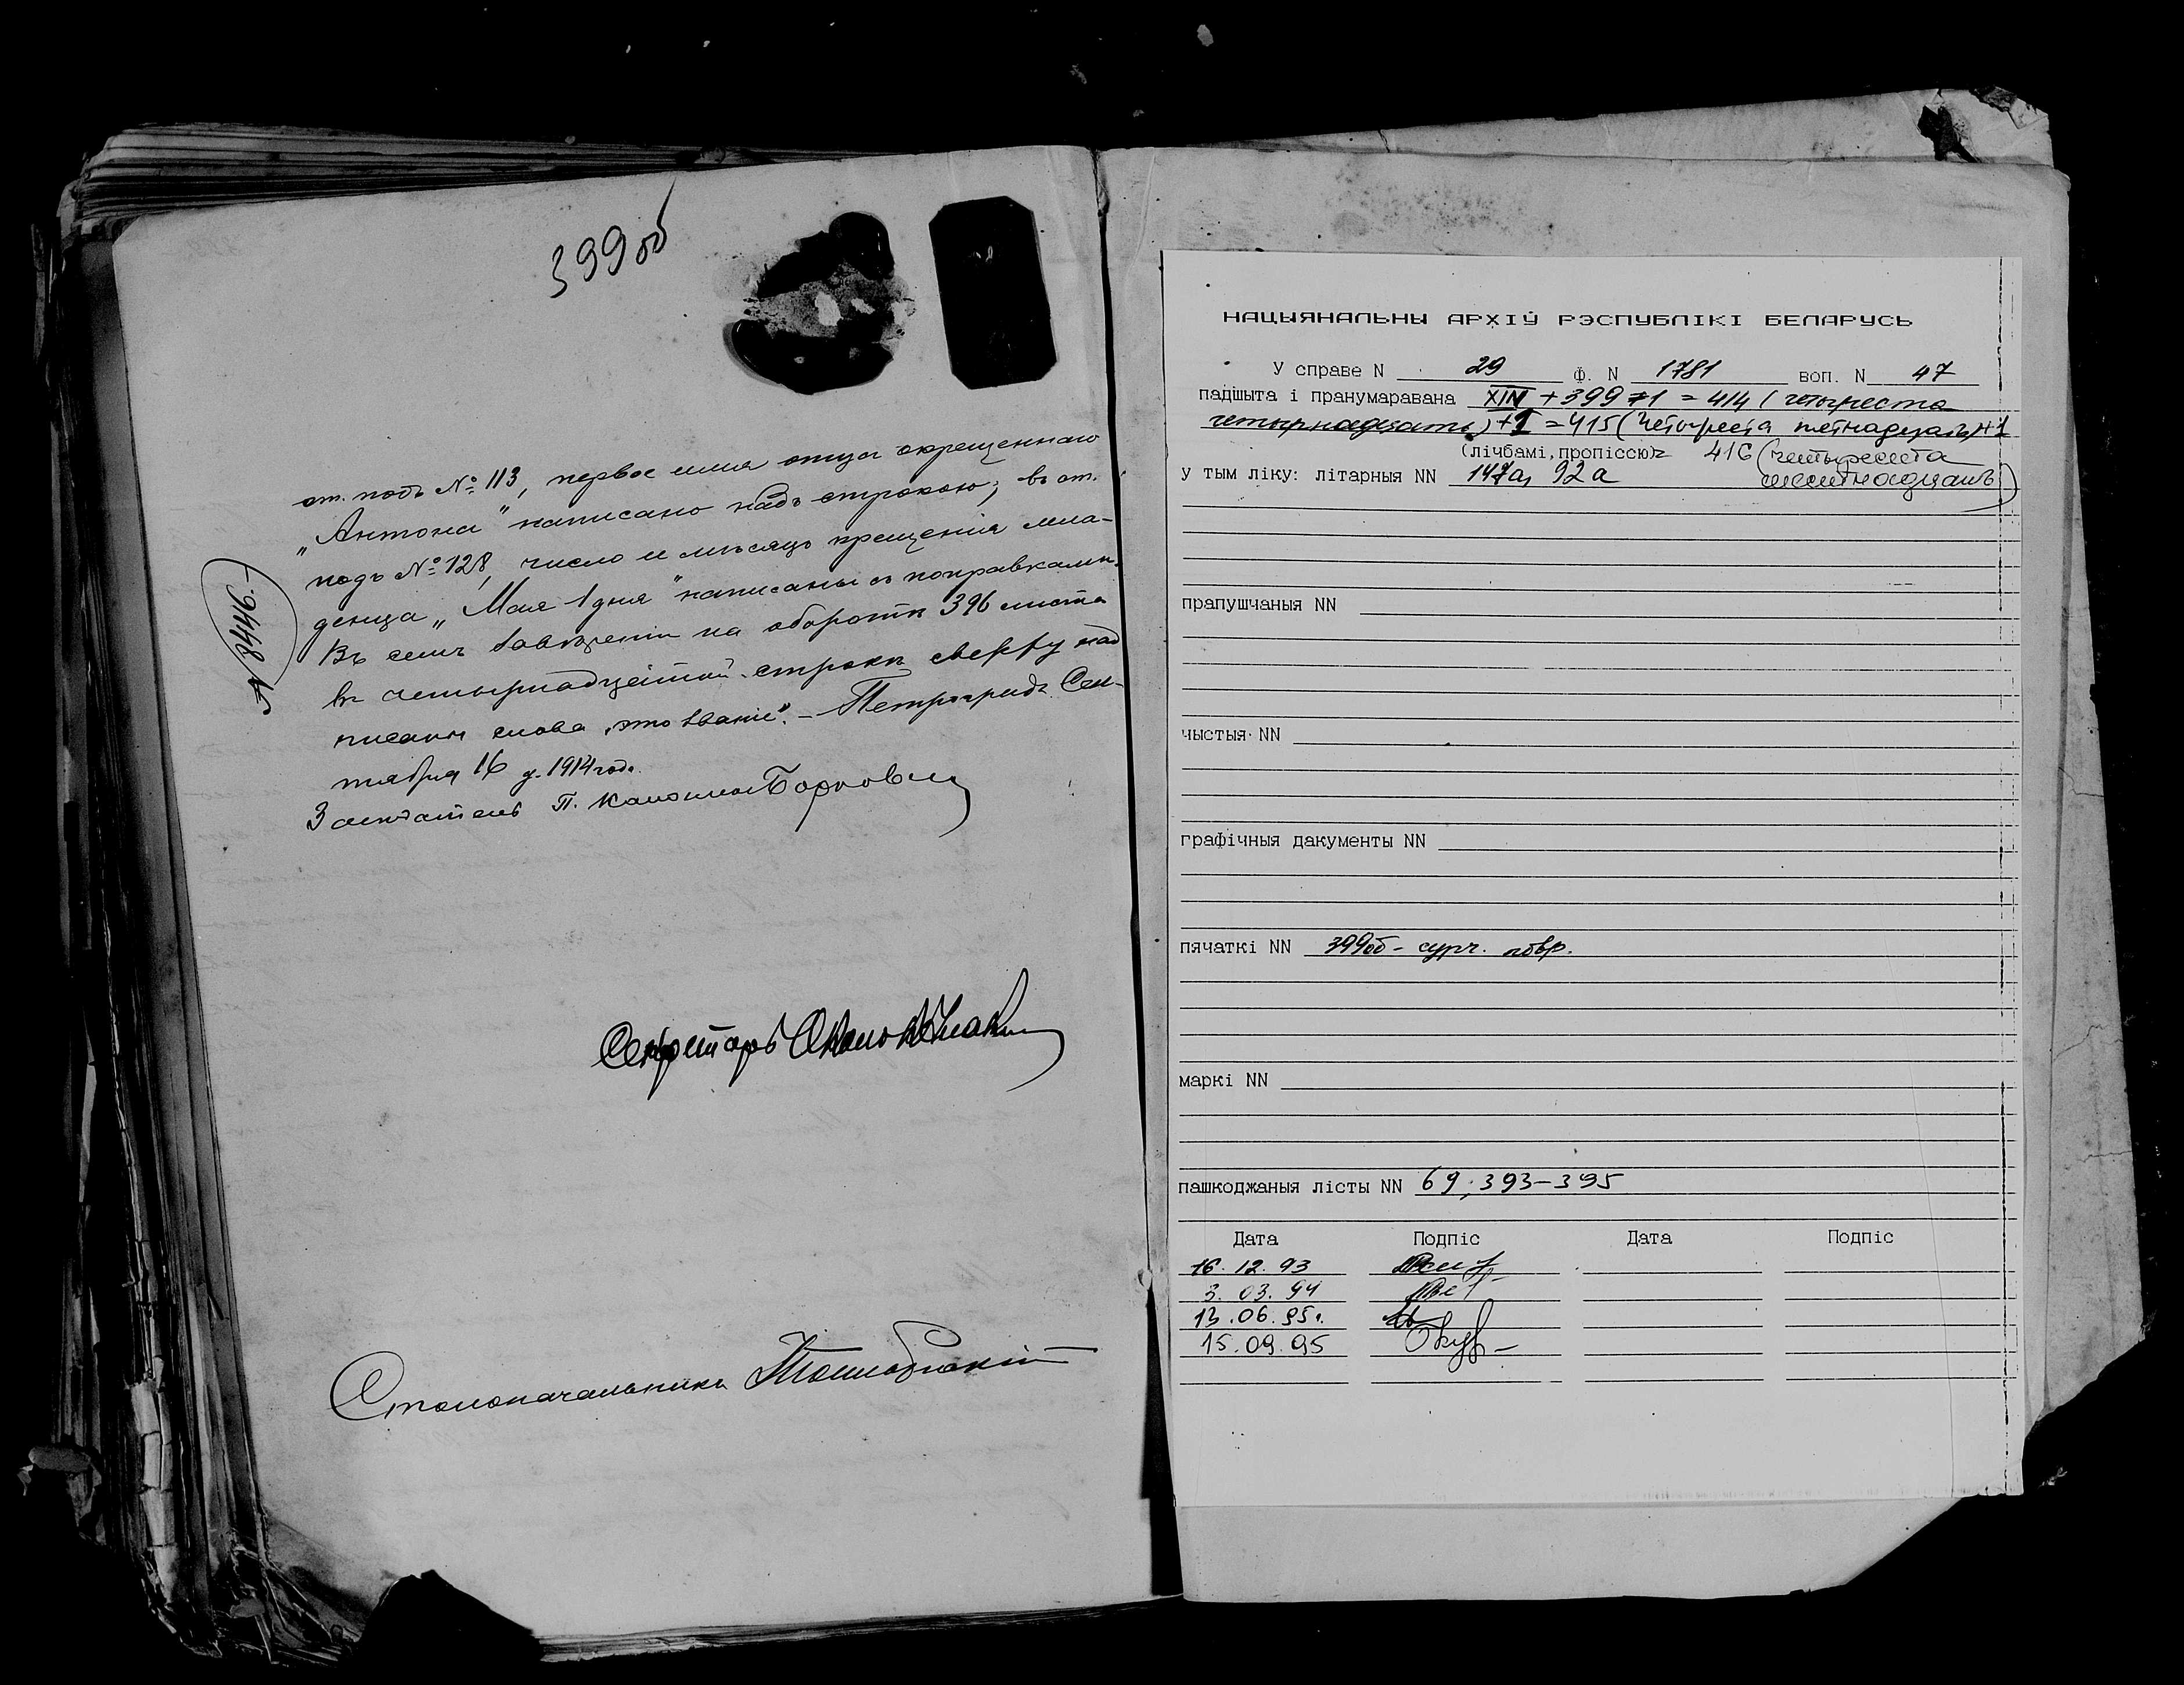 399об
ст. подъ №: 113, первое имя отца окрещеннаго
„Антона" написано надъ строкою; въ ст.
подъ №: 128, число и мѣсяцъ крещенія мла-
денца „Мая 1 дня" написаны съ поправками.
Въ семъ завѣреніи на оборотѣ 396 листа
въ четырнадцатой строкѣ сверху над
писаны слова „это званіе". – Петроградъ. Сен-
тября 16 д. 1914 года.
Засѣдатель П. Каноникъ
Секретарь
Столоначальникъ
НАЦЫЯНАЛЬНЫ АРХІЎ РЭСПУБЛІКІ БЕЛАРУСЬ
У справе N 29 ф. N 1781 воп. N 47
падшыта і пранумаравана XIV + 399 +1 = 414 (четыреста
четырнадцать) +1 = 415 (четыреста пятнадцать)+1
(лічбамі, пропіссю)= 416 (четыреста
у тым ліку: літарныя NN 147а, 92а шестнадцать)
прапушчаныя NN
чыстыя NN
графічныя дакументы NN
пячаткі NN 399об - сург. повр.
маркі NN
пашкоджаныя лісты NN 69; 393-395
Дата Подпіс Дата Подпіс
16. 12. 93
3. 03. 94
13. 06. 95г.
15. 09. 95